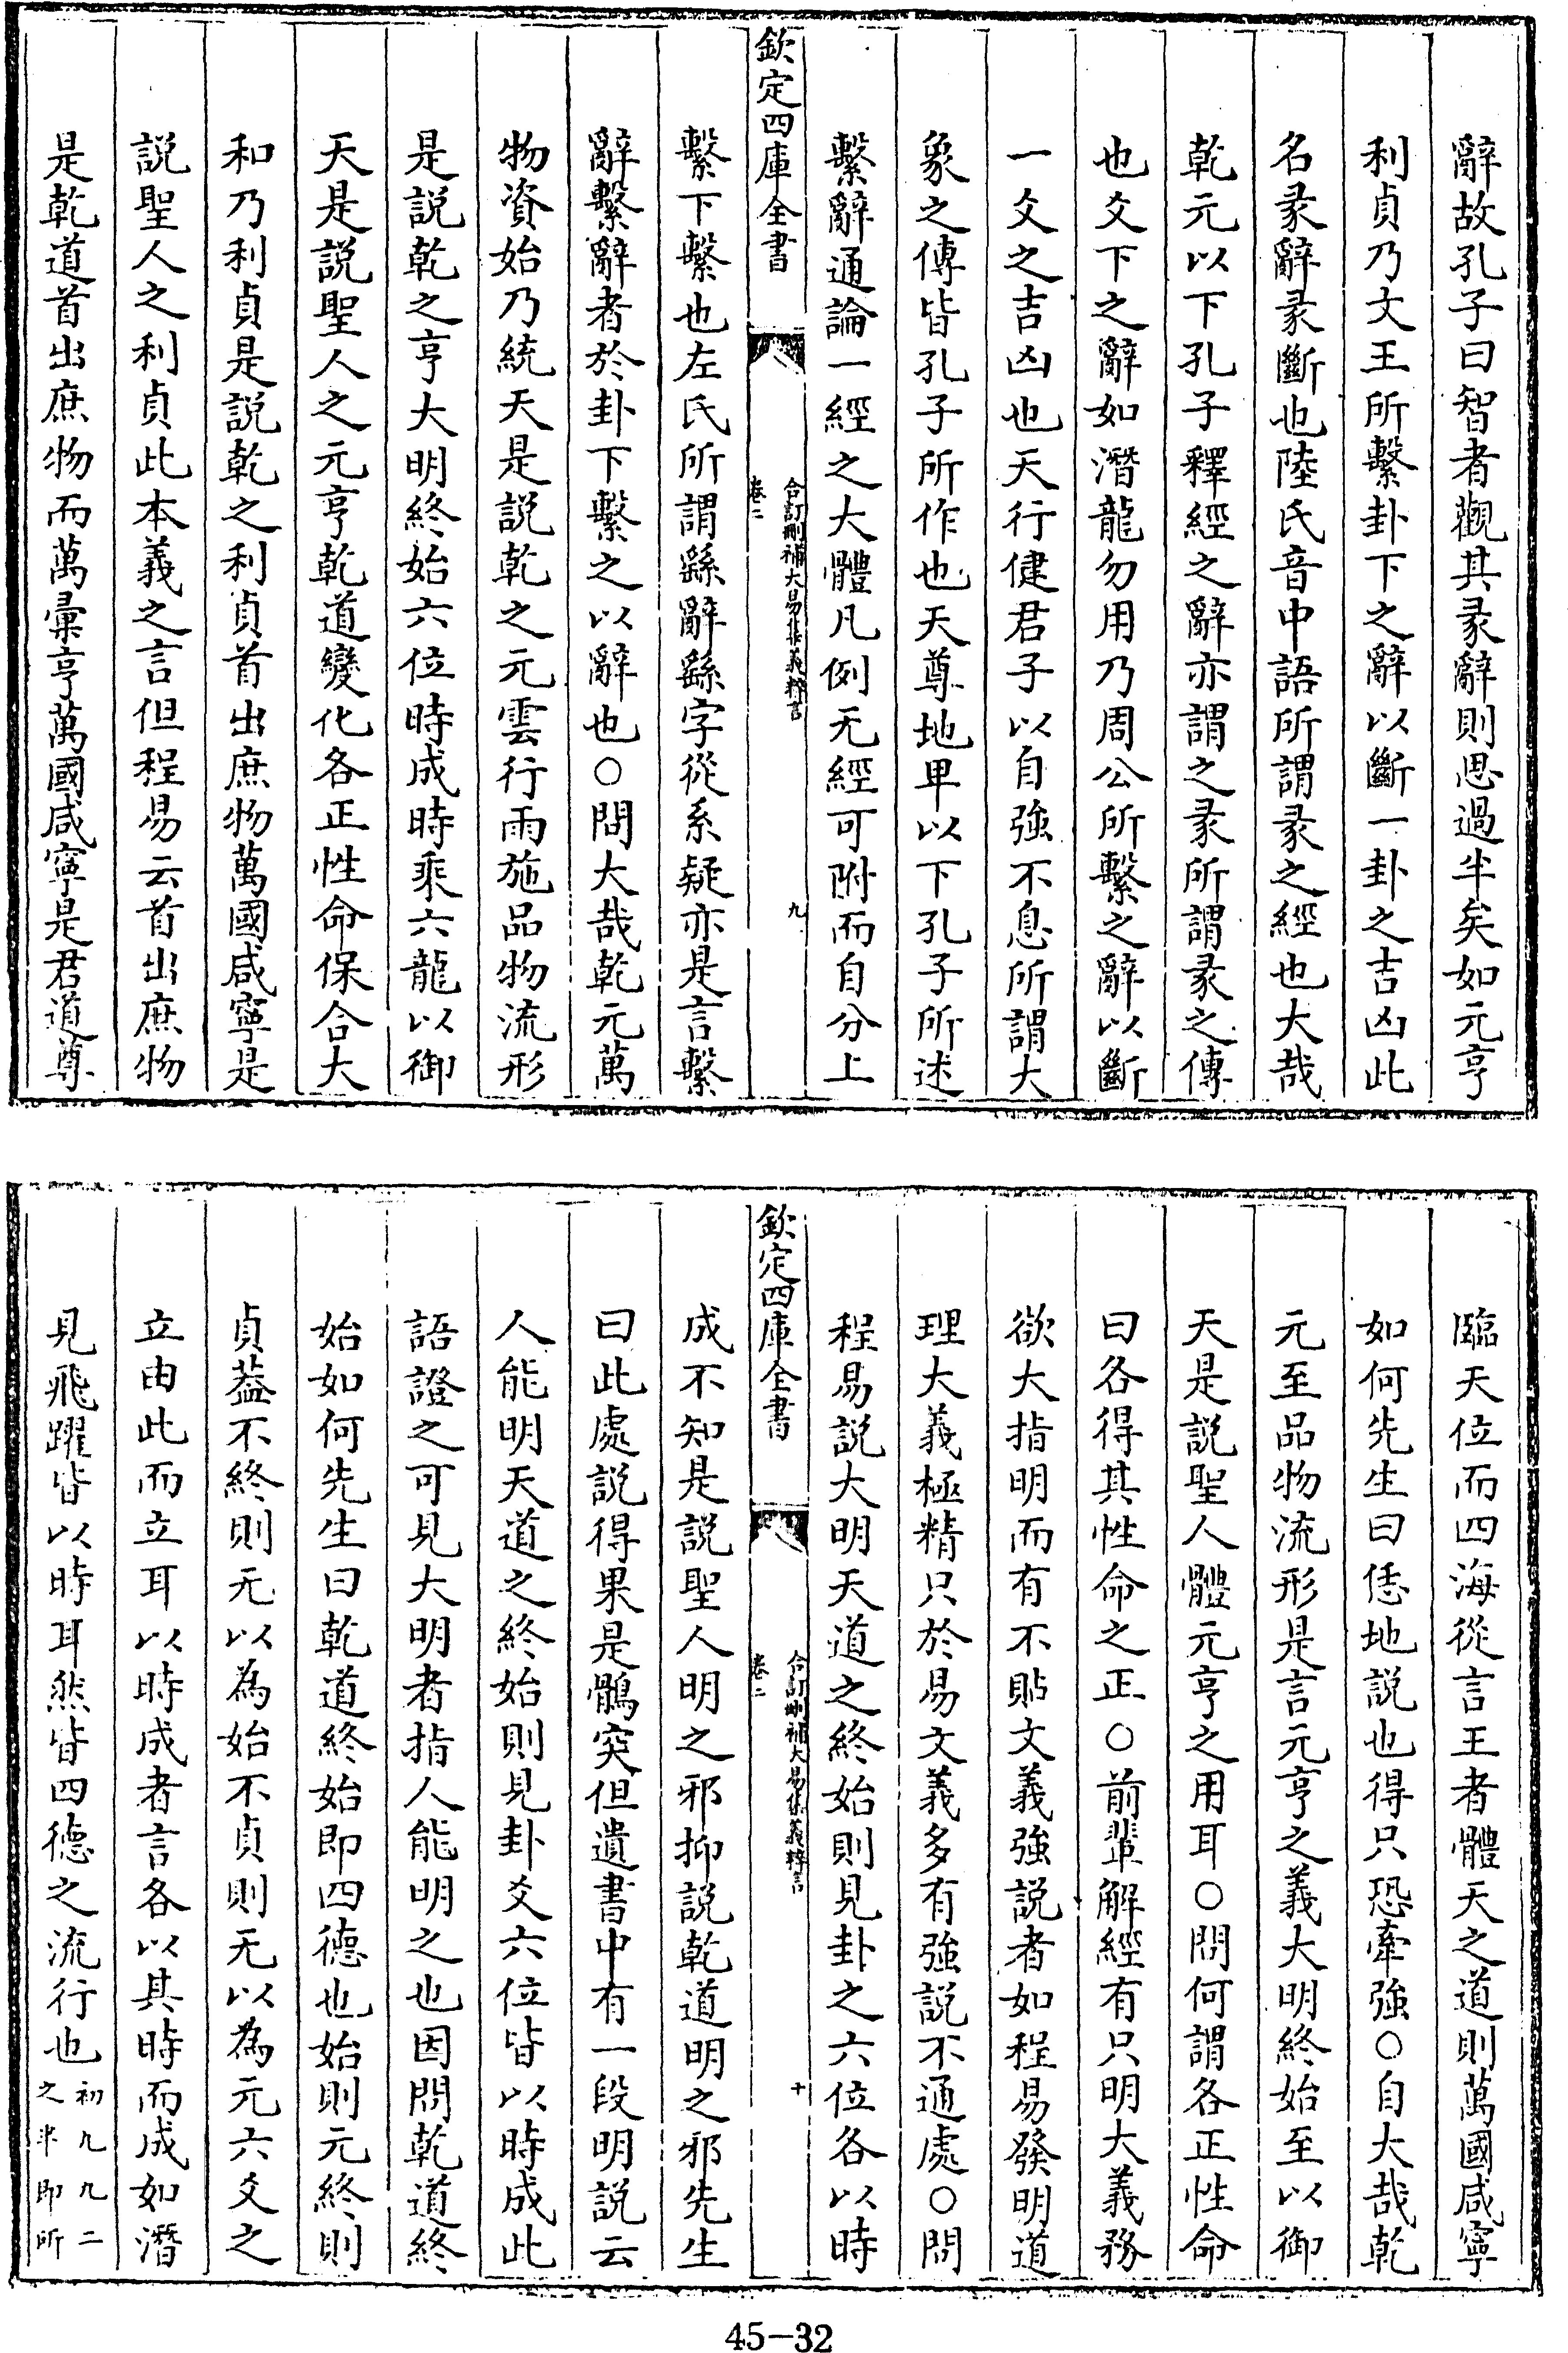 辭故孔子曰智者觀其彖辭則思過半矣如元亨
利貞乃文王所繫卦下之辭以斷一卦之吉凶此
名彖辭彖斷也陸氏音中語所謂彖之經也大哉
乾元以下孔子釋經之辭亦謂之彖所謂彖之傳
也爻下之辭如潛龍勿用乃周公所繫之辭以斷
一爻之吉凶也天行健君子以自強不息所謂大
象之傳皆孔子所作也天尊地卑以下孔子所述
繫辭通論一經之大體凡例无經可附而自分上
欽定四庫全書
合訂刪補大易集義粹言
卷二
九
繫下繫也左氏所謂繇辭繇字從系疑亦是言繫
辭繫辭者於卦下繫之以辭也○問大哉乾元萬
物資始乃統天是説乾之元雲行雨施品物流形
是説乾之亨大明終始六位時成時乘六龍以御
天是説聖人之元亨乾道變化各正性命保合大
和乃利貞是説乾之利貞首出庶物萬國咸寧是
説聖人之利貞此本義之言但程易云首出庶物
是乾道首出庶物而萬彙亨萬國咸寧是君道尊
臨天位而四海從言王者體天之道則萬國咸寧
如何先生曰恁地説也得只恐牽強○自大哉乾
元至品物流形是言元亨之義大明終始至以御
天是説聖人體元亨之用耳○問何謂各正性命
曰各得其性命之正○前輩解經有只明大義務
欲大指明而有不貼文義強説者如程易發明道
理大義極精只於易文義多有強説不通處○問
程易説大明天道之終始則見卦之六位各以時
欽定四庫全書
合訂刪補大易集義粹言
卷二
十
成不知是説聖人明之邪抑説乾道明之邪先生
曰此處説得果是鶻突但遺書中有一段明説云
人能明天道之終始則見卦爻六位皆以時成此
語證之可見大明者指人能明之也因問乾道終
始如何先生曰乾道終始即四德也始則元終則
貞葢不終則无以為始不貞則无以為元六爻之
立由此而立耳以時成者言各以其時而成如潛
見飛躍皆以時耳然皆四德之流行也初九九二
之半即所
45-32